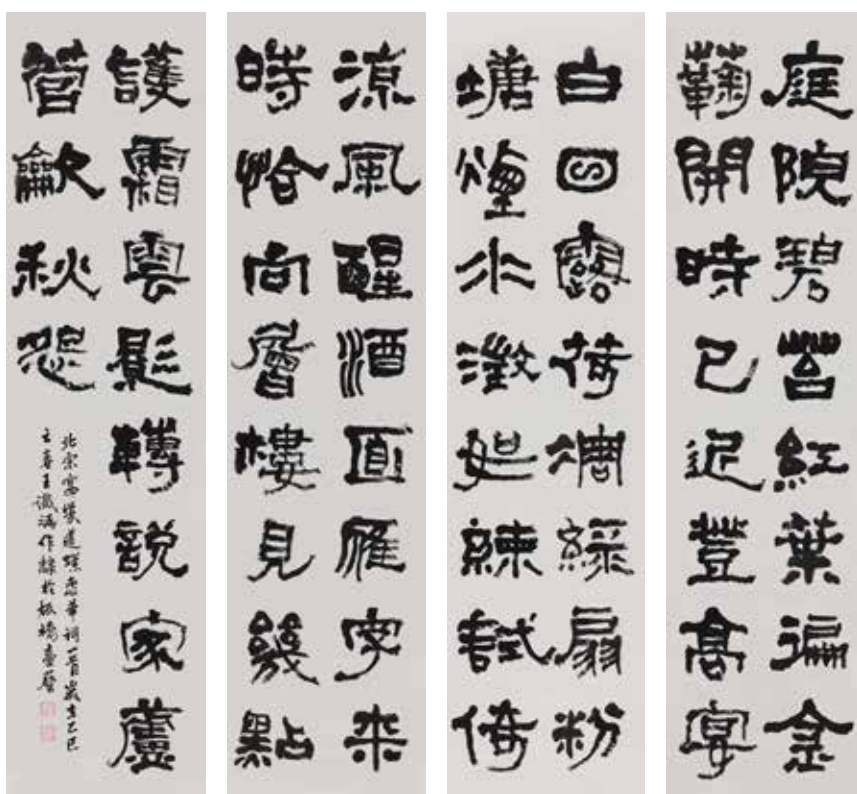 庭院碧苔紅葉遍金
鞠開時已近登高宴
白日露荷凋綠扇粉
塘煙水澂如練試倚
涼風醒酒面雁字來
時恰向層樓見幾點
護霜雲影轉說家蘆
管龡秋怨
北宋晏幾道蝶戀花詞一首歲在乙巳
之春王作隸於